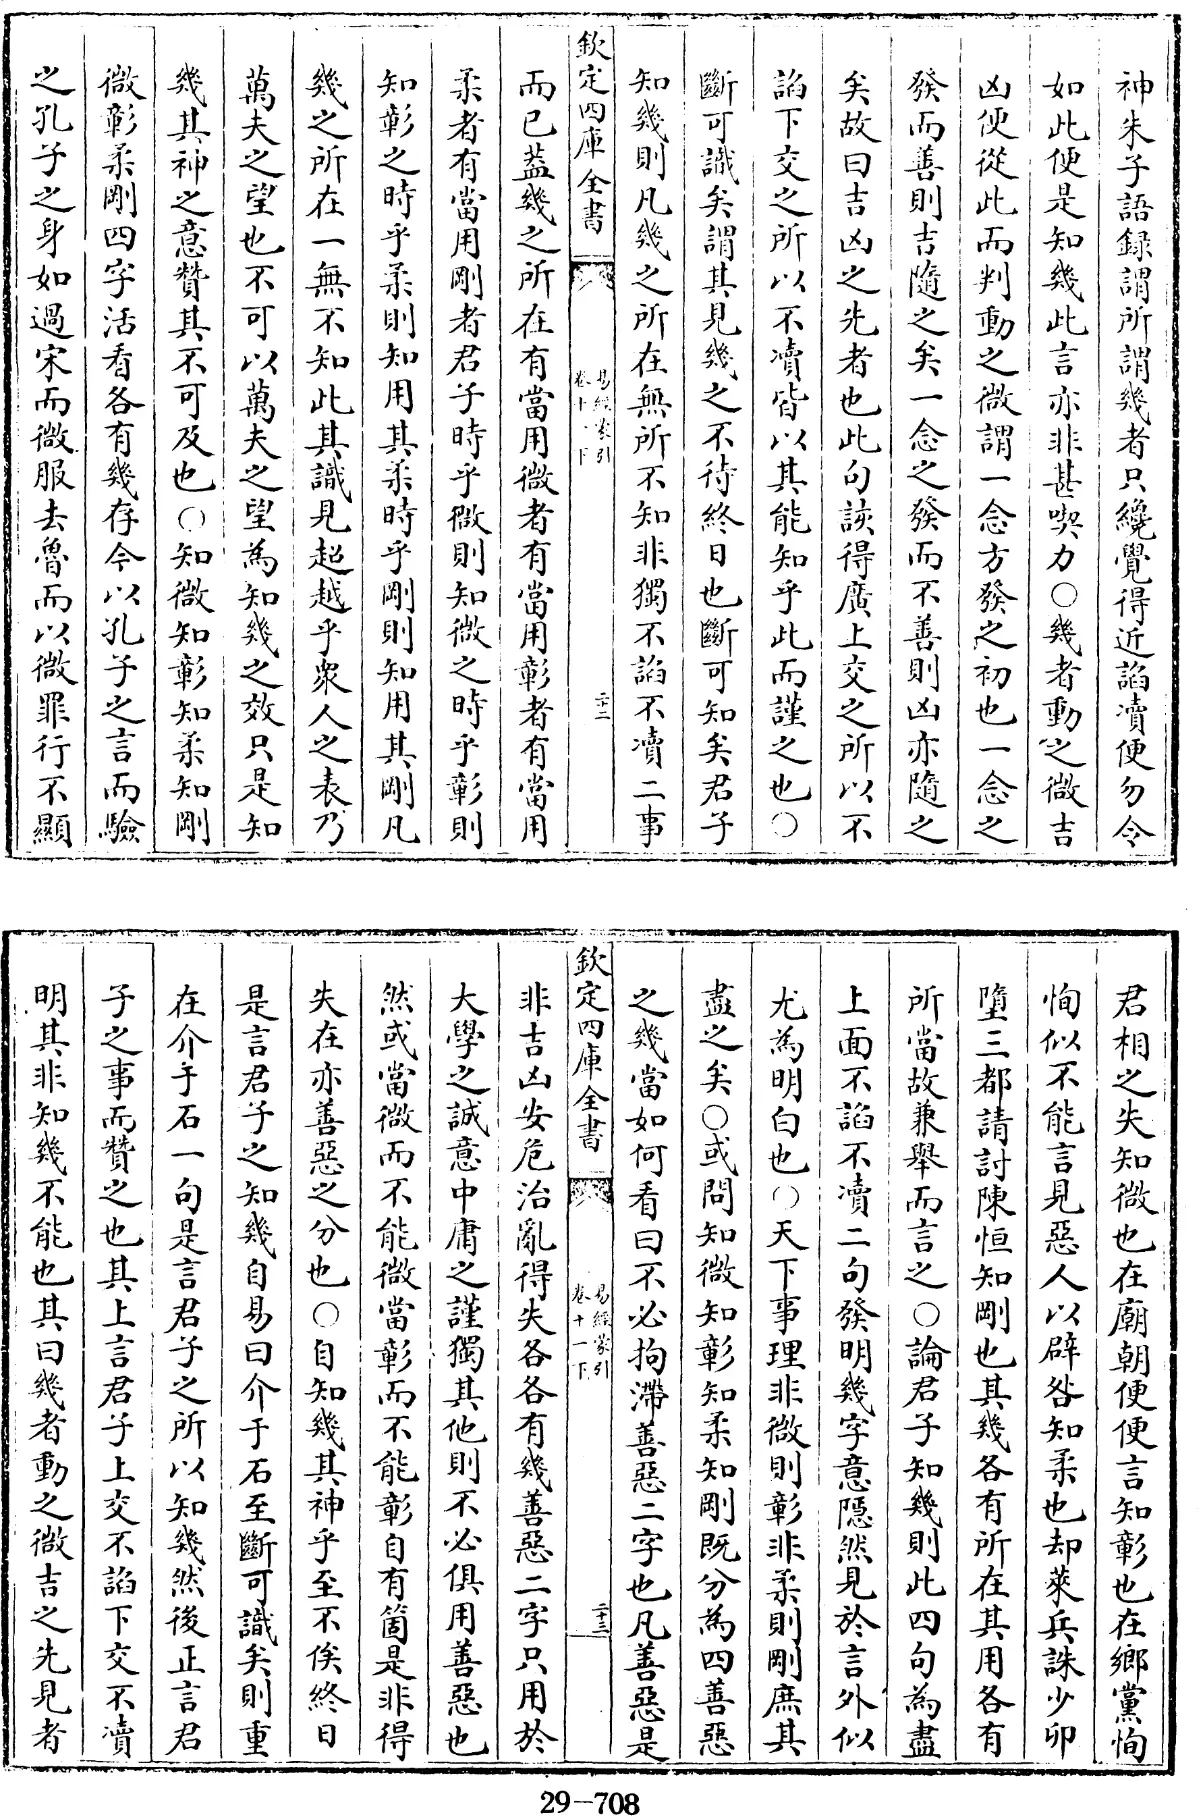 神朱子語録謂所謂幾者只纔覺得近諂凟便勿令
如此便是知幾此言亦非甚喫力〇幾者動之微吉
凶便從此而判動之微謂一念方發之初也一念之
發而善則吉隨之矣一念之發而不善則凶亦隨之
矣故曰吉凶之先者也此句該得廣上交之所以不
諂下交之所以不凟皆以其能知乎此而謹之也〇
斷可識矣謂其見幾之不待終日也斷可知矣君子
知幾則凡幾之所在無所不知非獨不諂不凟二事
欽定四庫全書
易經蒙引
卷十一下
二十二
而已葢幾之所在有當用微者有當用彰者有當用
柔者有當用剛者君子時乎微則知微之時乎彰則
知彰之時乎柔則知用其柔時乎剛則知用其剛凡
幾之所在一無不知此其識見超越乎衆人之表乃
萬夫之望也不可以萬夫之望為知幾之效只是知
幾其神之意贊其不可及也〇知微知彰知柔知剛
微彰柔剛四字活看各有幾存今以孔子之言而驗
之孔子之身如過宋而微服去魯而以微罪行不顯
君相之失知微也在廟朝便便言知彰也在鄉黨恂
恂似不能言見惡人以辟咎知柔也却萊兵誅少卯
墮三都請討陳恒知剛也其幾各有所在其用各有
所當故兼舉而言之〇論君子知幾則此四句為盡
上面不諂不凟二句發明幾字意隱然見於言外似
尤為明白也〇天下事理非微則彰非柔則剛庶其
盡之矣〇或問知微知彰知柔知剛既分為四善惡
之幾當如何看曰不必拘滯善惡二字也凡善惡是
欽定四庫全書
易經蒙引
卷十一下
二十三
非吉凶安危治亂得失各各有幾善惡二字只用於
大學之誠意中庸之謹獨其他則不必俱用善惡也
然或當微而不能微當彰而不能彰自有箇是非得
失在亦善惡之分也〇自知幾其神乎至不俟終日
是言君子之知幾自易曰介于石至斷可識矣則重
在介于石一句是言君子之所以知幾然後正言君
子之事而贊之也其上言君子上交不諂下交不凟
明其非知幾不能也其曰幾者動之微吉之先見者
29-708